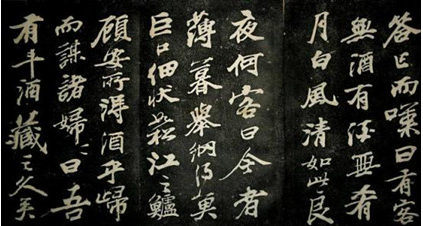 答已而嘆曰有客
無酒有酒無肴
月白風清如此良
夜何客曰今者
薄暮舉網得魚
巨口細狀松江之鱸
顧安所得酒乎歸
而謀諸婦〻曰吾
有斗酒藏之久矣